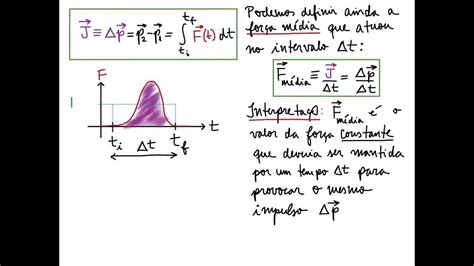 J⃗ ≡ Δp⃗ = p⃗₂ - p⃗₁ = ∫_{t_i}^{t_f} F⃗(t) dt
F
t
t_i
Δt
t_f
Podemos definir ainda a
força média que atuou
no intervalo Δt:
F⃗_média ≡ J⃗/Δt = Δp⃗/Δt
Interpretaç: F⃗_média é o
valor da força constante
que deveria ser mantida
por um tempo Δt para
provocar o mesmo
impulso Δp⃗